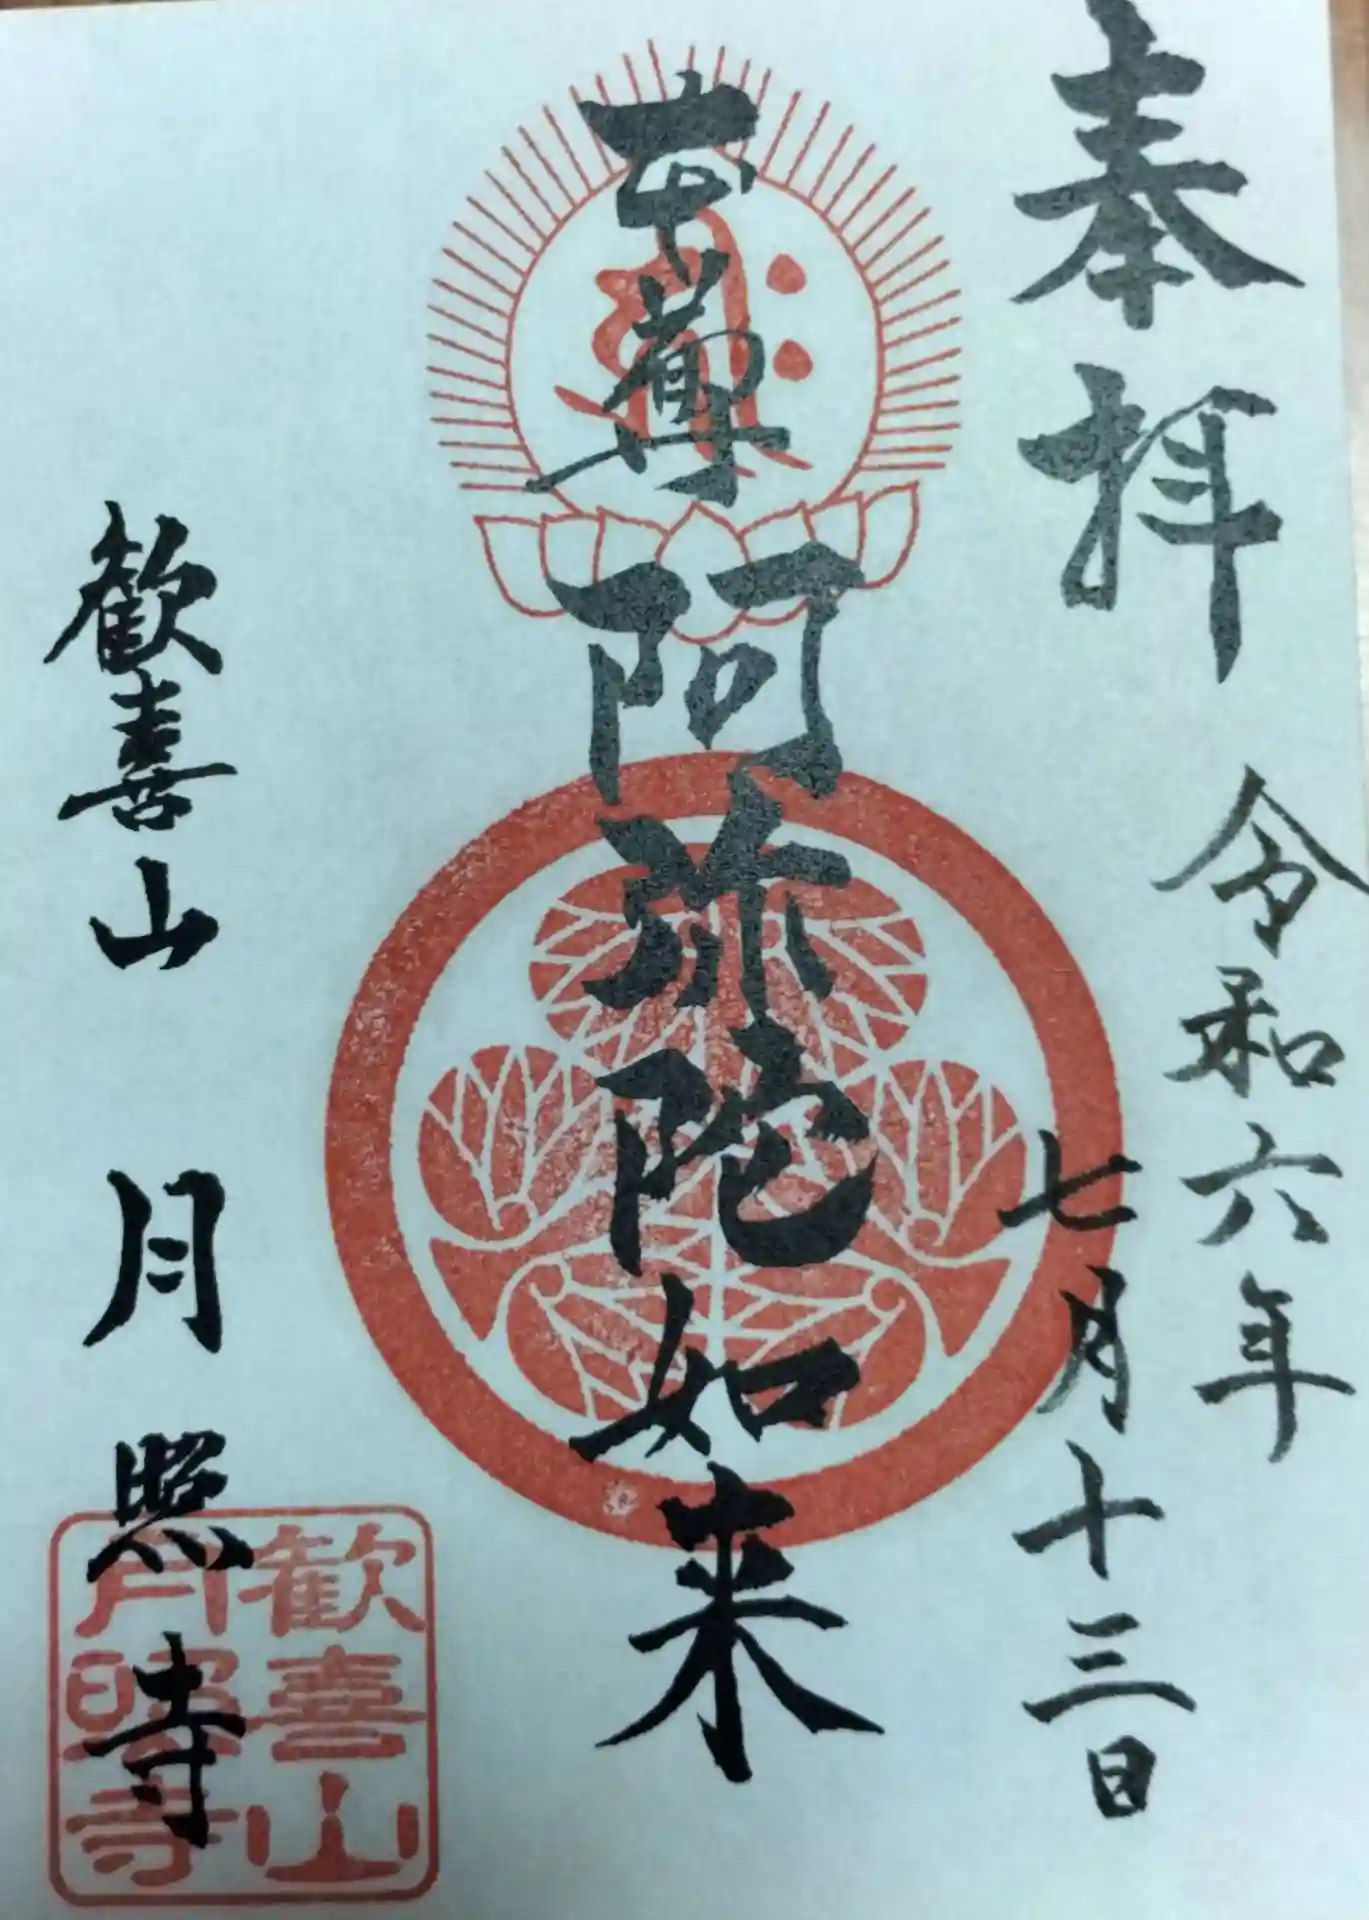 奉拝
令和六年
七月十三日
本尊 阿弥陀如来
歓喜山 月照寺
歓喜山
月照寺